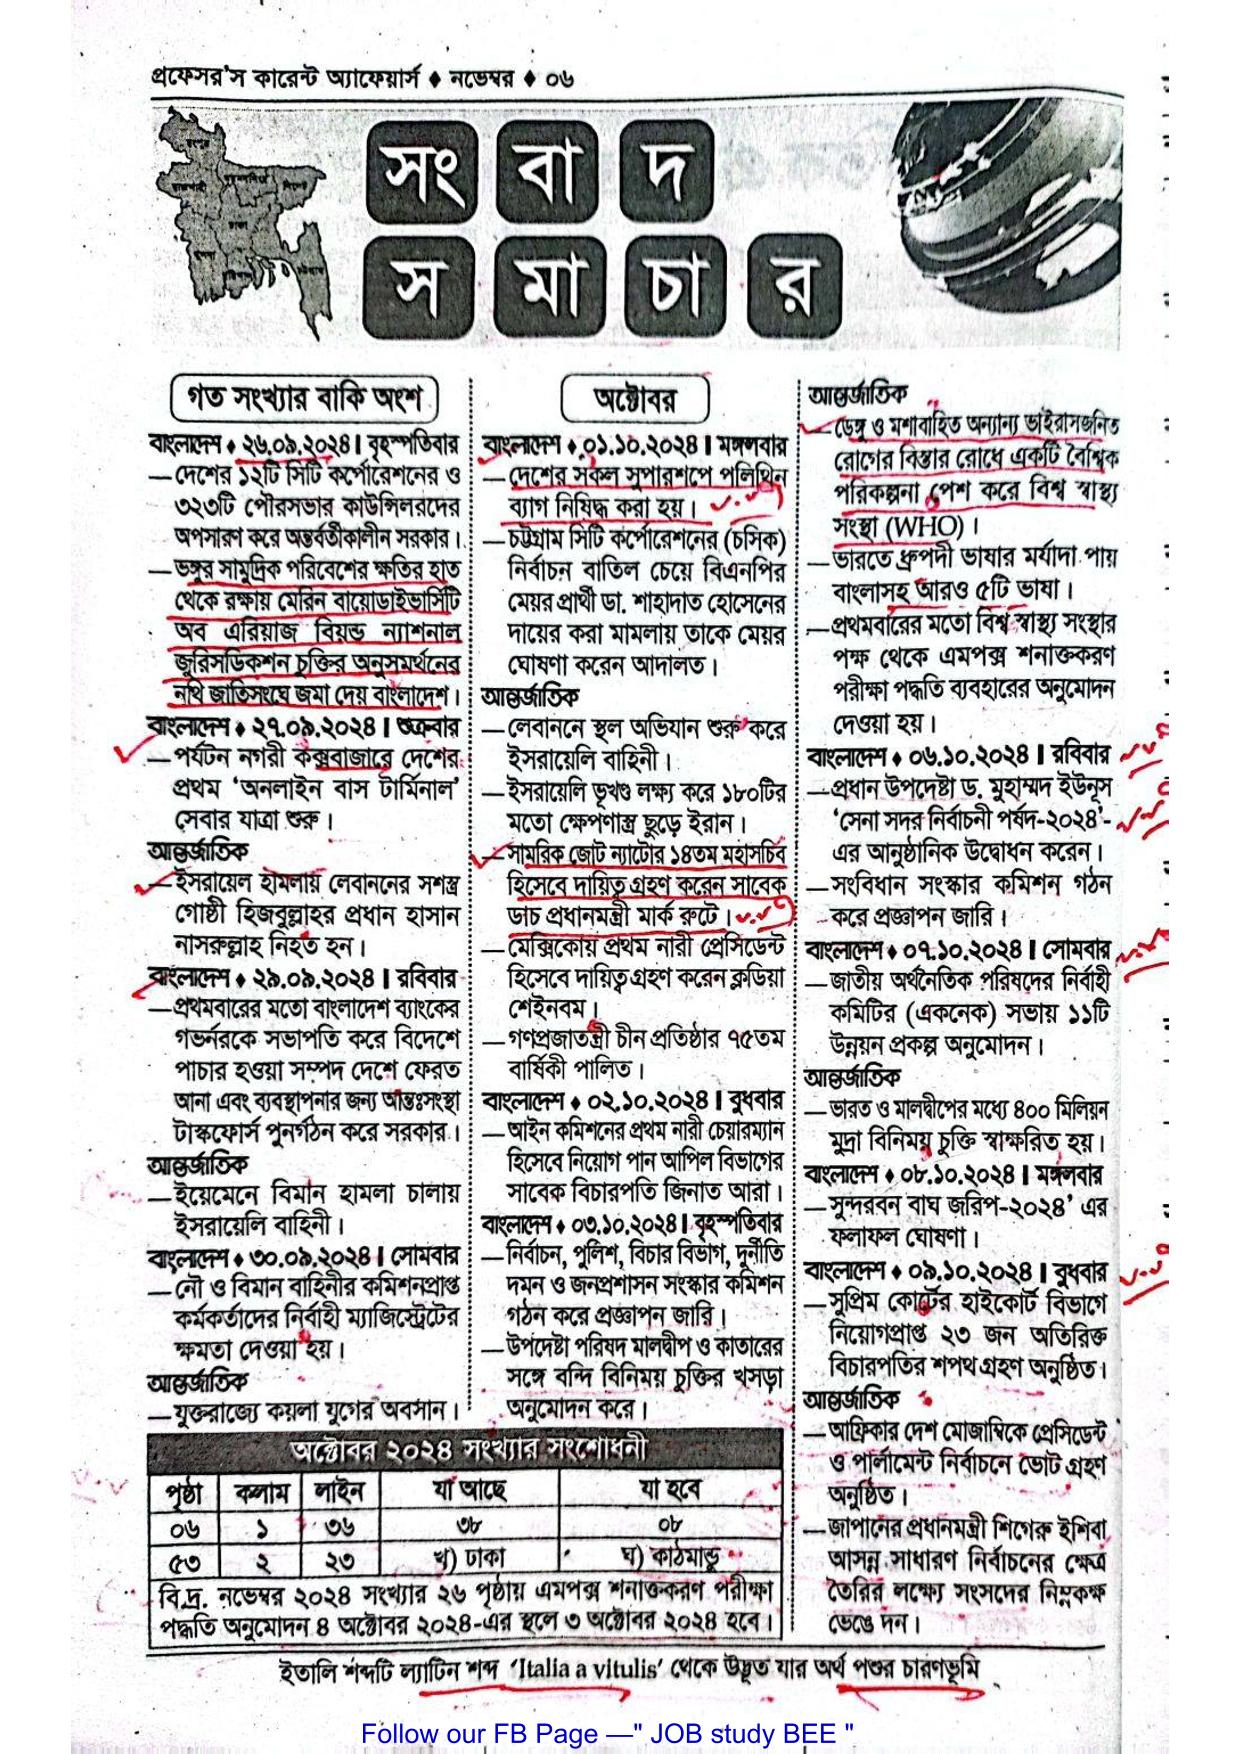 প্রফেসর'স কারেন্ট অ্যাফেয়ার্স ♦ নভেম্বর ♦ ০৬
সংবাদ
সমাচার
গত সংখ্যার বাকি অংশ
বাংলাদেশ ♦ ২৬.০৯.২০২৪ । বৃহস্পতিবার
—দেশের ১২টি সিটি কর্পোরেশনের ও
৩২৩টি পৌরসভার কাউন্সিলরদের
অপসারণ করে অন্তর্বর্তীকালীন সরকার।
—ভঙ্গুর সামুদ্রিক পরিবেশের ক্ষতির হাত
থেকে রক্ষায় মেরিন বায়োডাইভার্সিটি
অব এরিয়াজ বিয়ন্ড ন্যাশনাল
জুরিসডিকশন চুক্তির অনুসমর্থনের
নথি জাতিসংঘে জমা দেয় বাংলাদেশ।
বাংলাদেশ ♦ ২৭.০৯.২০২৪ । শুক্রবার
—পর্যটন নগরী কক্সবাজারে দেশের
প্রথম ‘অনলাইন বাস টার্মিনাল’
সেবার যাত্রা শুরু।
আন্তর্জাতিক
—ইসরায়েল হামলায় লেবাননের সশস্ত্র
গোষ্ঠী হিজবুল্লাহর প্রধান হাসান
নাসরুল্লাহ নিহত হন।
বাংলাদেশ ♦ ২৯.০৯.২০২৪ । রবিবার
—প্রথমবারের মতো বাংলাদেশ ব্যাংকের
গভর্নরকে সভাপতি করে বিদেশে
পাচার হওয়া সম্পদ দেশে ফেরত
আনা এবং ব্যবস্থাপনার জন্য আন্তঃসংস্থা
টাস্কফোর্স পুনর্গঠন করে সরকার।
আন্তর্জাতিক
—ইয়েমেনে বিমান হামলা চালায়
ইসরায়েলি বাহিনী।
বাংলাদেশ ♦ ৩০.০৯.২০২৪ । সোমবার
—নৌ ও বিমান বাহিনীর কমিশনপ্রাপ্ত
কর্মকর্তাদের নির্বাহী ম্যাজিস্ট্রেটের
ক্ষমতা দেওয়া হয়।
আন্তর্জাতিক
—যুক্তরাজ্যে কয়লা যুগের অবসান।
অক্টোবর
বাংলাদেশ ♦ ০১.১০.২০২৪ । মঙ্গলবার
—দেশের সকল সুপারশপে পলিথিন
ব্যাগ নিষিদ্ধ করা হয়।
—চট্টগ্রাম সিটি কর্পোরেশনের (চসিক)
নির্বাচন বাতিল চেয়ে বিএনপির
মেয়র প্রার্থী ডা. শাহাদাত হোসেনের
দায়ের করা মামলায় তাকে মেয়র
ঘোষণা করেন আদালত।
আন্তর্জাতিক
—লেবাননে স্থল অভিযান শুরু করে
ইসরায়েলি বাহিনী।
—ইসরায়েলি ভূখণ্ড লক্ষ্য করে ১৮০টির
মতো ক্ষেপণাস্ত্র ছুড়ে ইরান।
—সামরিক জোট ন্যাটোর ১৪তম মহাসচিব
হিসেবে দায়িত্ব গ্রহণ করেন সাবেক
ডাচ প্রধানমন্ত্রী মার্ক রুটে।
—মেক্সিকোয় প্রথম নারী প্রেসিডেন্ট
হিসেবে দায়িত্ব গ্রহণ করেন ক্লডিয়া
শেইনবম।
—গণপ্রজাতন্ত্রী চীন প্রতিষ্ঠার ৭৫তম
বার্ষিকী পালিত।
বাংলাদেশ ♦ ০২.১০.২০২৪ । বুধবার
—আইন কমিশনের প্রথম নারী চেয়ারম্যান
হিসেবে নিয়োগ পান আপিল বিভাগের
সাবেক বিচারপতি জিনাত আরা।
বাংলাদেশ ♦ ০৩.১০.২০২৪ । বৃহস্পতিবার
—নির্বাচন, পুলিশ, বিচার বিভাগ, দুর্নীতি
দমন ও জনপ্রশাসন সংস্কার কমিশন
গঠন করে প্রজ্ঞাপন জারি।
—উপদেষ্টা পরিষদ মালদ্বীপ ও কাতারের
সঙ্গে বন্দি বিনিময় চুক্তির খসড়া
অনুমোদন করে।
আন্তর্জাতিক
—ডেঙ্গু ও মশাবাহিত অন্যান্য ভাইরাসজনিত
রোগের বিস্তার রোধে একটি বৈশ্বিক
পরিকল্পনা পেশ করে বিশ্ব স্বাস্থ্য
সংস্থা (WHO)।
—ভারতে ধ্রুপদী ভাষার মর্যাদা পায়
বাংলাসহ আরও ৫টি ভাষা।
—প্রথমবারের মতো বিশ্ব স্বাস্থ্য সংস্থার
পক্ষ থেকে এমপক্স শনাক্তকরণ
পরীক্ষা পদ্ধতি ব্যবহারের অনুমোদন
দেওয়া হয়।
বাংলাদেশ ♦ ০৬.১০.২০২৪ । রবিবার
—প্রধান উপদেষ্টা ড. মুহাম্মদ ইউনূস
‘সেনা সদর নির্বাচনী পর্ষদ-২০২৪’-
এর আনুষ্ঠানিক উদ্বোধন করেন।
—সংবিধান সংস্কার কমিশন গঠন
করে প্রজ্ঞাপন জারি।
বাংলাদেশ ♦ ০৭.১০.২০২৪ । সোমবার
—জাতীয় অর্থনৈতিক পরিষদের নির্বাহী
কমিটির (একনেক) সভায় ১১টি
উন্নয়ন প্রকল্প অনুমোদন।
আন্তর্জাতিক
—ভারত ও মালদ্বীপের মধ্যে ৪০০ মিলিয়ন
মুদ্রা বিনিময় চুক্তি স্বাক্ষরিত হয়।
বাংলাদেশ ♦ ০৮.১০.২০২৪ । মঙ্গলবার
—সুন্দরবন বাঘ জরিপ-২০২৪’ এর
ফলাফল ঘোষণা।
বাংলাদেশ ♦ ০৯.১০.২০২৪ । বুধবার
—সুপ্রিম কোর্টের হাইকোর্ট বিভাগে
নিয়োগপ্রাপ্ত ২৩ জন অতিরিক্ত
বিচারপতির শপথ গ্রহণ অনুষ্ঠিত।
আন্তর্জাতিক
—আফ্রিকার দেশ মোজাম্বিকে প্রেসিডেন্ট
ও পার্লামেন্ট নির্বাচনে ভোট গ্রহণ
অনুষ্ঠিত।
—জাপানের প্রধানমন্ত্রী শিগেরু ইশিবা
আসন্ন সাধারণ নির্বাচনের ক্ষেত্র
তৈরির লক্ষ্যে সংসদের নিম্নকক্ষ
ভেঙে দেন।
অক্টোবর ২০২৪ সংখ্যার সংশোধনী
পৃষ্ঠা কলাম লাইন যা আছে যা হবে
০৬ ১ ৩৬ ৩৮ ০৮
৫৩ ২ ২৩ খ) ঢাকা ঘ) কাঠমান্ডু
বি.দ্র. নভেম্বর ২০২৪ সংখ্যার ২৬ পৃষ্ঠায় এমপক্স শনাক্তকরণ পরীক্ষা
পদ্ধতি অনুমোদন ৪ অক্টোবর ২০২৪-এর স্থলে ৩ অক্টোবর ২০২৪ হবে।
ইতালি শব্দটি ল্যাটিন শব্দ ‘Italia a vitulis’ থেকে উদ্ভূত যার অর্থ পশুর চারণভূমি
Follow our FB Page —" JOB study BEE "